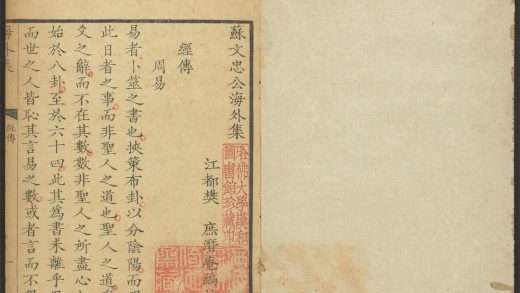 蘇文忠公海外集
哈佛大學漢和
圖書館珍藏印
江都樊 庶潛庵編
經傳
周易
易者卜筮之書也挾策布卦以分陰陽而
此日者之事而非聖人之道也聖人之道
爻之辭而不在其數數非聖人之所盡心
始於八卦至於六十四此其為書未離乎
而世之人皆恥其言易之數或者言而不
海外集
經傳